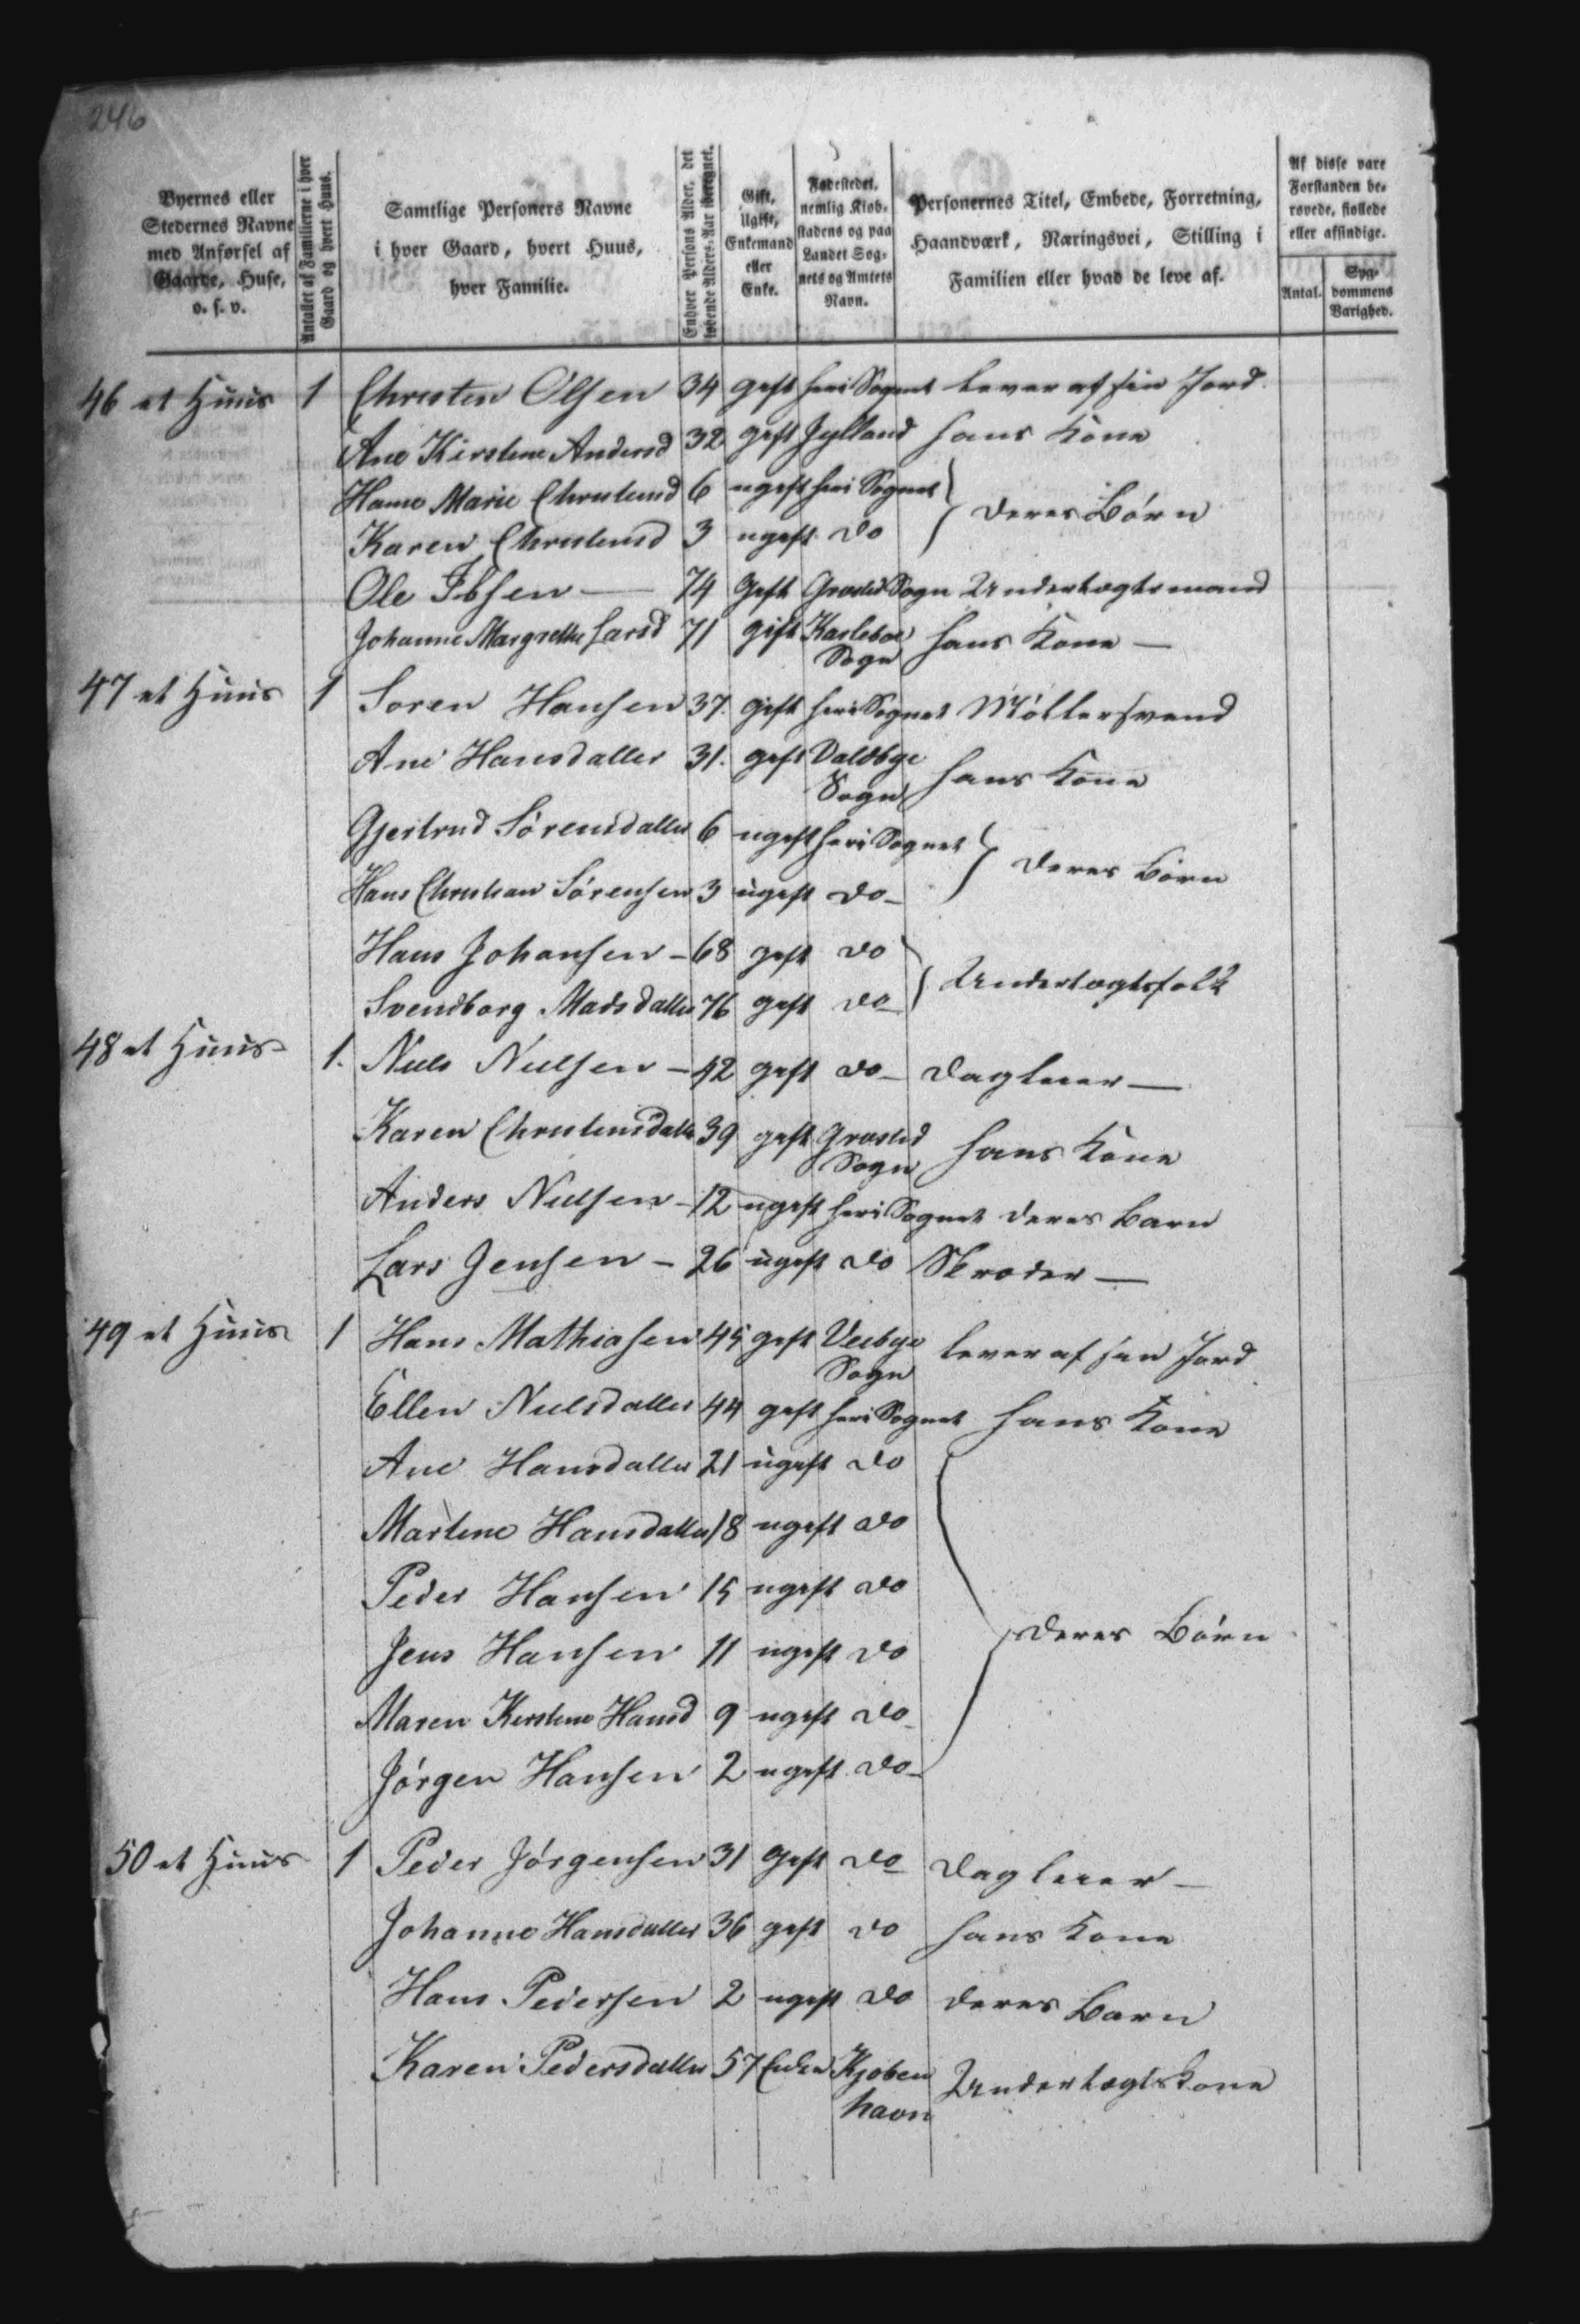 246
Byernes eller Stedernes Navne med Anførsel af Gaarde, Huse, o. s. v.
Antallet af Familierne i hver Gaard og hvert Huus.
Samtlige Personers Navne i hver Gaard, hvert Huus, hver Familie.
Enhver Persons Alder, det løbende Alders-Aar iberegnet.
Gift, Ugift, Enkemand eller Enke.
Fødestedet, nemlig Kiøbstadens og paa Landet Sognets og Amtets Navn.
Personernes Titel, Embede, Forretning, Haandværk, Næringsvei, Stilling i Familien eller hvad de leve af.
Af disse vare Forstanden berøvede, fiollede eller afsindige.
Antal. Sygdommens Varighed.
46 et Huus 1 Christen Olsen 34 gift her i Sognet lever af sin Jord
Ane Kirstine Andersd 32 gift Jylland hans Kone
Hanne Marie Christensd 6 ugift her i Sognet } deres Børn
Karen Christensd 3 ugift do
Ole Ibsen — 74 Gift Græsted Sogn Undertægtsmand
Johanne Margrethe Larsd 71 gift Karleboe Sogn hans Kone —
47 et Huus 1 Soren Hansen 37. gift her i Sognet Møllersvend
Ane Hansdatter 31. gift Valdbye Sogn hans Kone
Gjertrud Sørensdatter 6 ugift her i Sognet } deres Børn
Hans Christian Sørensen 3 ugift do –
Hans Johansen – 68 gift do } Undertægtsfolk
Svendborg Madsdatter 76 gift do
48 et Huus 1. Niels Nielsen – 42 gift do – Dagleier —
Karen Christensdatter 39 gift Græsted Sogn hans Kone
Anders Nielsen – 12 ugift her i Sognet deres Barn
Lars Jensen – 26 ugift do Skræder —
49 et Huus 1 Hans Mathiasen 45 gift Veibye Sogn lever af sin Jord
Ellen Nielsdatter 44 gift her i Sognet hans Kone
Ane Hansdatter 21 ugift do
Martine Hansdatter 18 ugift do
Peder Hansen 15 ugift do
Jens Hansen 11 ugift do } deres Børn
Maren Kirstine Hansd 9 ugift do
Jørgen Hansen 2 ugift do –
50 et Huus 1 Peder Jørgensen 31 Gift do Dagleier –
Johanne Hansdatter 36 gift do hans Kone
Hans Pedersen 2 ugift do deres Barn
Karen Pedersdatter 57 Enke Kjøbenhavn Undertægtskone